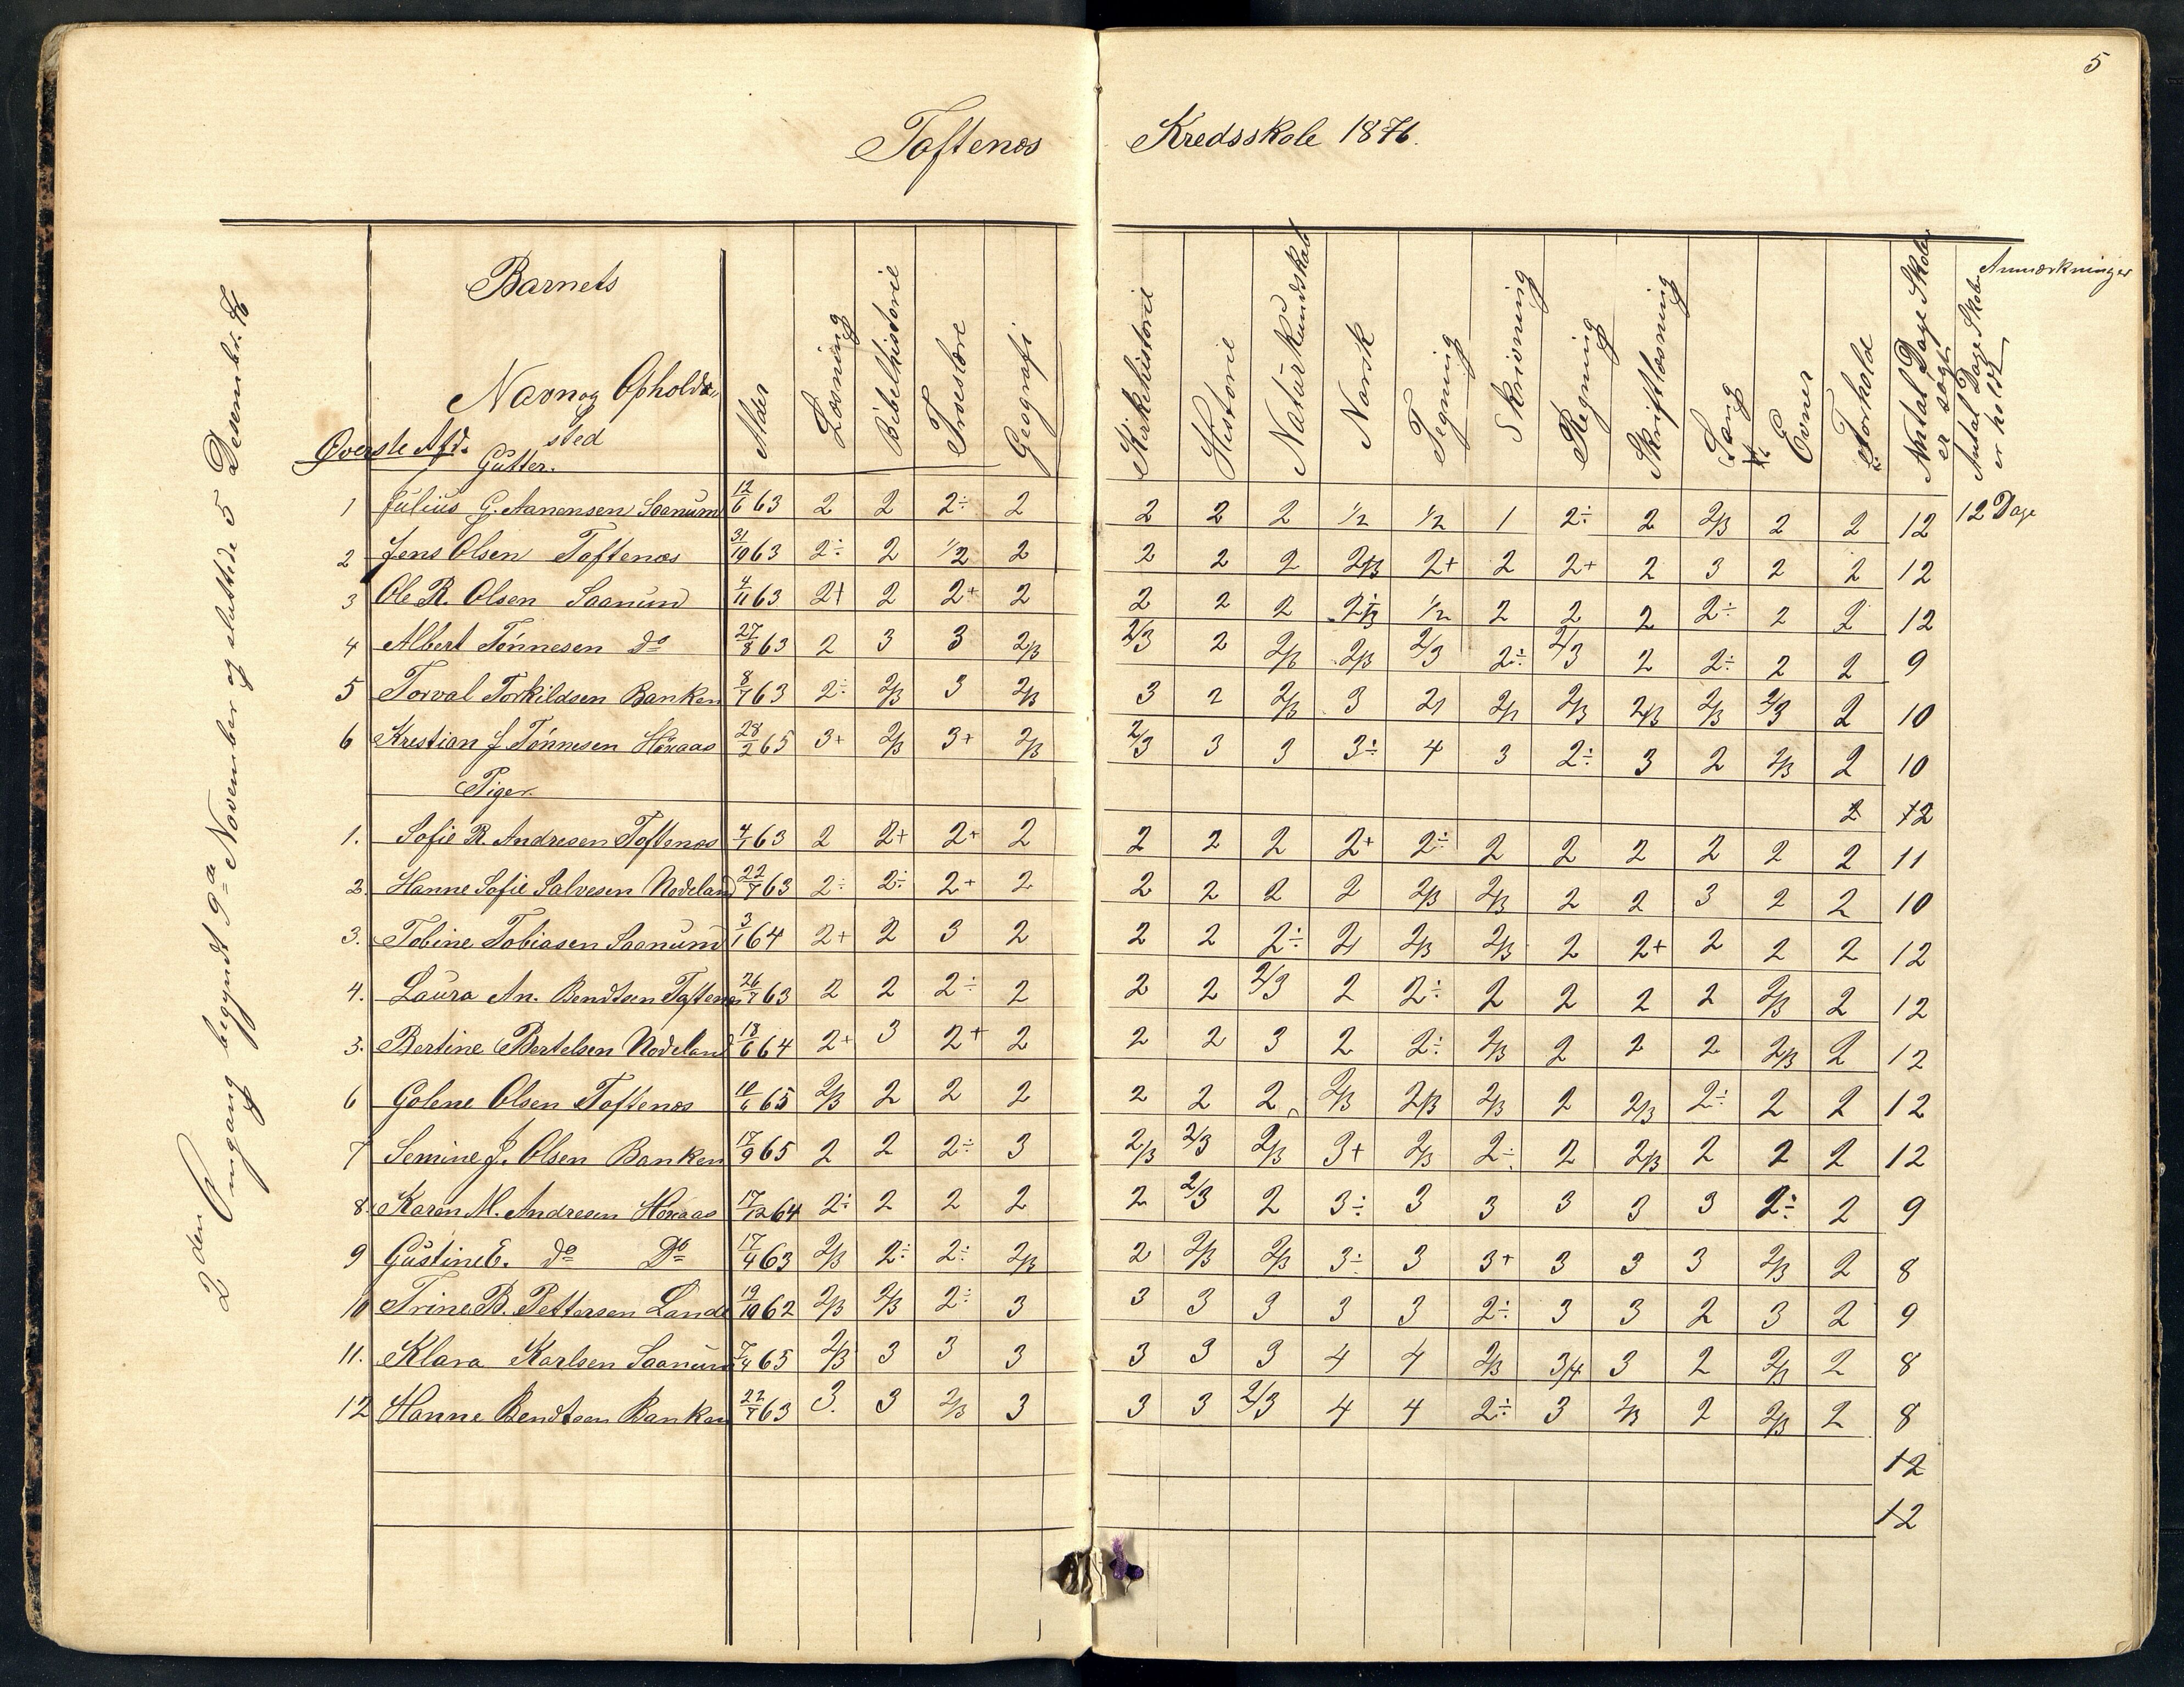 5
Toftenæs Kredsskole 1876.
2den Omgang begyndt 9de November og sluttede 5 Desember 76
Barnets
Navn og Opholds-
sted
Øverste Afd.
Gutter.
Alder
Læsning
Bibelhistorie
Troeslære
Geografi
Kirkehistorie
Historie
Naturkundskab
Norsk
Tegning
Skrivning
Regning
Skriftlæsning
Sang
Evner
Forholde
Antal Dage Skolen er søgt
Antal Dage Skolen er holdt
Anmærkninger
1 Julius G. Aanensen Saanum 12/6 63 2 2 2÷ 2 2 2 2 1/2 1/2 1 2÷ 2 2/3 2 2 12 12 Dage
2 Jens Olsen Toftenæs 31/10 63 2÷ 2 1/2 2 2 2 2 2/3 2+ 2 2+ 2 3 2 2 12
3 Ole R. Olsen Saanum 4/11 63 2+ 2 2+ 2 2 2 2 1/2 2 2 2 2÷ 2 2 12
4 Albert Tønnesen do 27/8 63 2 3 3 2/3 2/3 2 2/3 2/3 2/3 2÷ 2/3 2 2÷ 2 2 9
5 Torval Torkildsen Banken 8/7 63 2÷ 2/3 3 2/3 3 2 2/3 3 2/3 2/3 2/3 2/3 2 10
6 Krestian J. Tønnesen 28/2 65 3+ 2/3 3+ 2/3 2/3 3 3 3÷ 4 3 2÷ 3 2 2/3 2 10
Piger.
2 12
1. Sofie R. Andresen Toftenæs 4/1 63 2 2+ 2+ 2 2 2 2 2+ 2÷ 2 2 2 2 2 2 11
2. Hanne Sofie Salvesen Nodeland 22/7 63 2÷ 2÷ 2+ 2 2 2 2 2 2/3 2/3 2 2 3 2 2 10
3. Tobine Tobiasen Saanum 3/1 64 2+ 2 3 2 2 2 2÷ 2 2/3 2/3 2 2+ 2 2 2 12
4. Laura An. Bendtsen Toftenæs 26/7 63 2 2 2÷ 2 2 2 2/3 2 2÷ 2 2 2 2 2/3 2 12
3. Bertine Bertelsen Nodeland 18/6 64 2+ 3 2+ 2 2 2 3 2 2÷ 2/3 2 2 2 2/3 2 12
6 Golene Olsen Toftenæs 10/6 65 2/3 2 2 2 2 2 2 2/3 2/3 2/3 2 2/3 2÷ 2 2 12
7 Semine J. Olsen Banken 17/9 65 2 2 2÷ 3 2/3 2/3 2/3 3+ 2/3 2÷ 2 2/3 2 2 2 12
8. Karen M. Andresen 17/12 64 2÷ 2 2 2 2 2/3 2 3÷ 3 3 3 3 3 2÷ 2 9
9 Gustine E. do Do 17/4 63 2/3 2÷ 2÷ 2/3 2 2/3 2/3 3÷ 3 3+ 3 3 3 2/3 2 8
10 Trine B. Pettersen Lande 19/10 62 2/3 2/3 2÷ 3 3 3 3 3 3 2÷ 3 3 2 3 2 9
11. Klara Karlsen Saanum 7/4 65 2/3 3 3 3 3 3 3 4 4 2/3 3/4 3 2 2/3 2 8
12 Hanne Bendtsen Banken 22/7 63 3. 3 2/3 3 3 3 2/3 4 4 2÷ 3 2/3 2 2/3 2 8
12
12